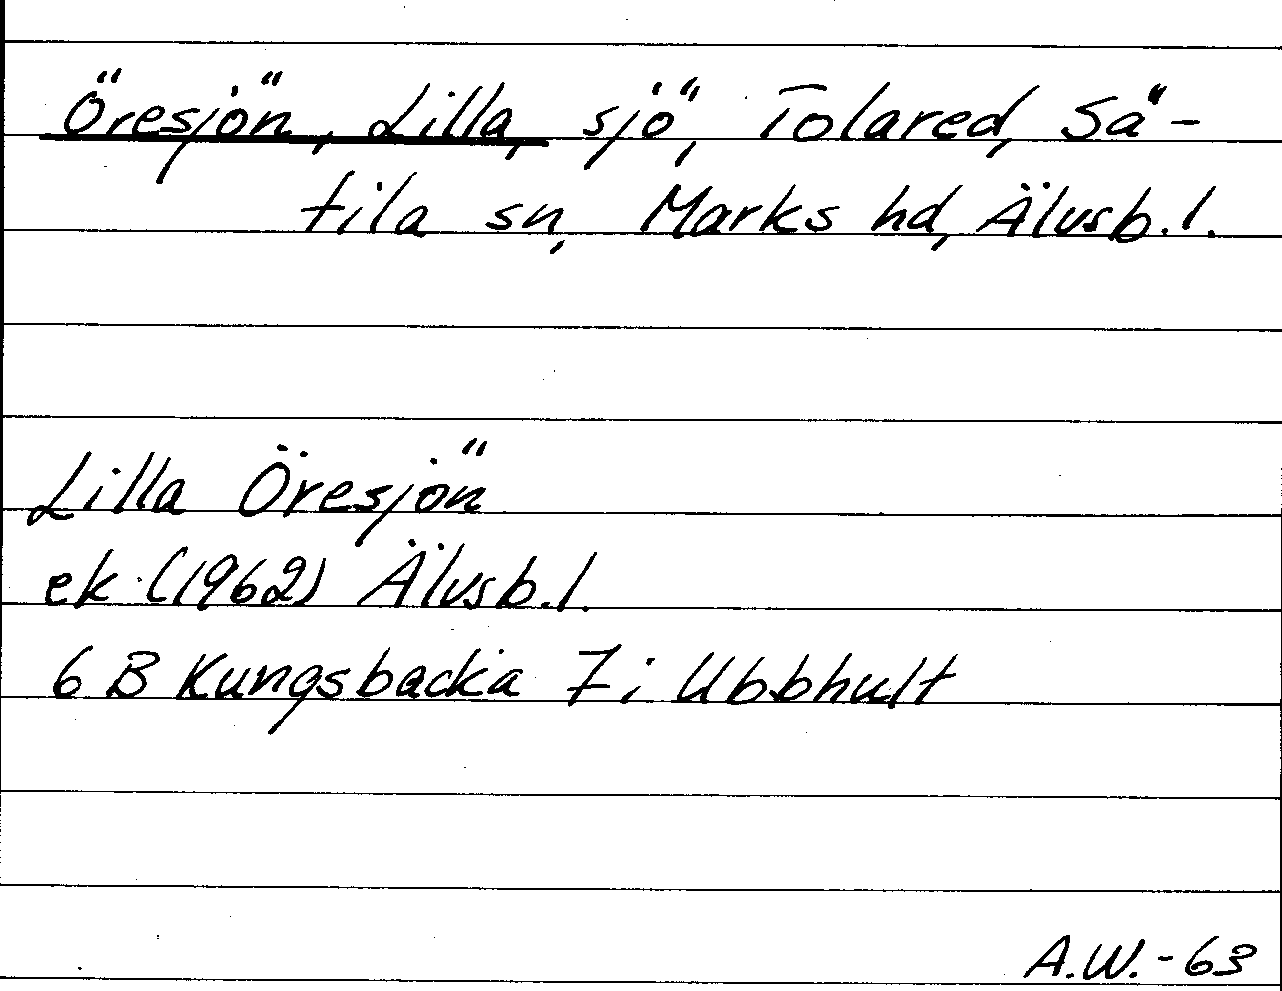 Öresjön, Lilla, sjö, Tolared, Sä-
tila sn, Marks hd, Älvsb.l.
Lilla Öresjön
ek (1962) Älvsb.l.
6 B Kungsbacka 7i Ubbhult
A.W.-63